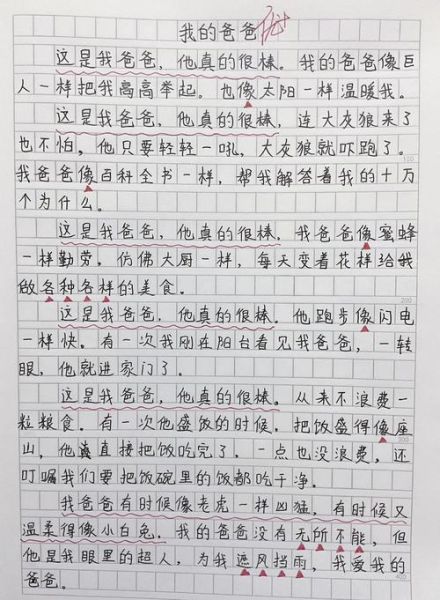 我的爸爸
这是我爸爸，他真的很棒。我的爸爸像巨
人一样把我高高举起。也像太阳一样温暖我。
这是我爸爸，他真的很棒，连大灰狼来了
也不怕，他只要轻轻一吼，大灰狼就吓跑了。
我爸爸像百科全书一样，帮我解答着我的十万
个为什么。
这是我爸爸，他真的很棒，我爸爸像蜜蜂
一样勤劳。仿佛大厨一样，每天变着花样给我
做各种各样的美食。
这是我爸爸，他真的很棒。他跑步像闪电
一样快。有一次我刚在阳台看见我爸爸，一转
眼，他就进家门了。
这是我爸爸，他真的很棒。从来不浪费一
粒粮食。有一次他盛饭的时候，把饭盛得像座
山，他直接把饭吃完了。一点也没浪费，还
叮嘱我们要把饭碗里的饭都吃干净。
我爸爸有时候像老虎一样凶猛，有时候又
温柔得像小白兔，我的爸爸没有无所不能，但
他是我眼里的超人，为我遮风挡雨，我爱我的
爸爸。
100
200
300
400